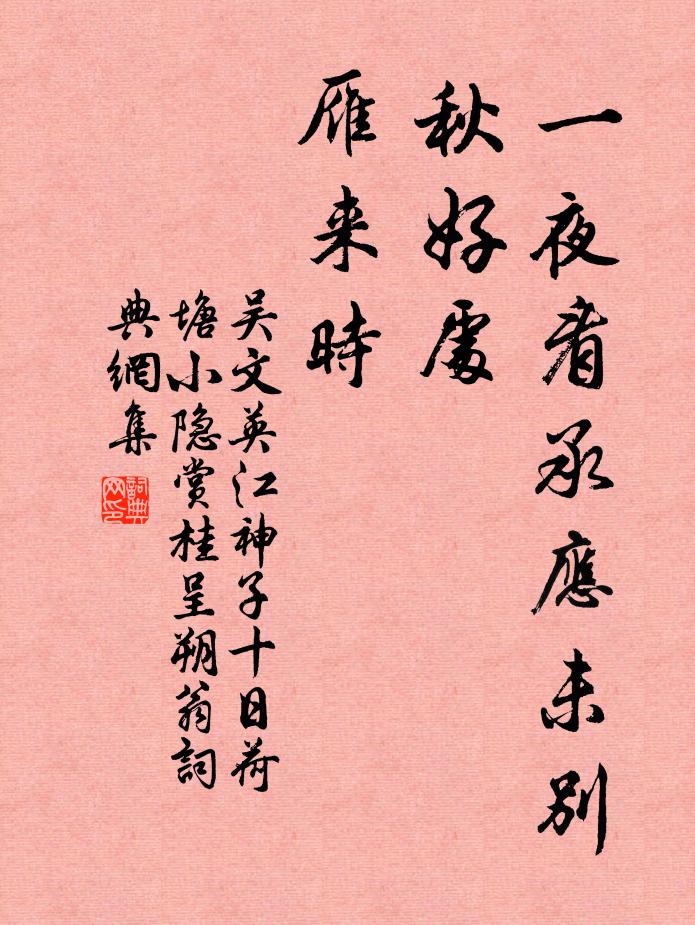 一夜看承應未别
秋好處
雁来時
吴文英江神子十日荷
塘小隐賞桂呈朔翁詞
典網集
詞典
网印